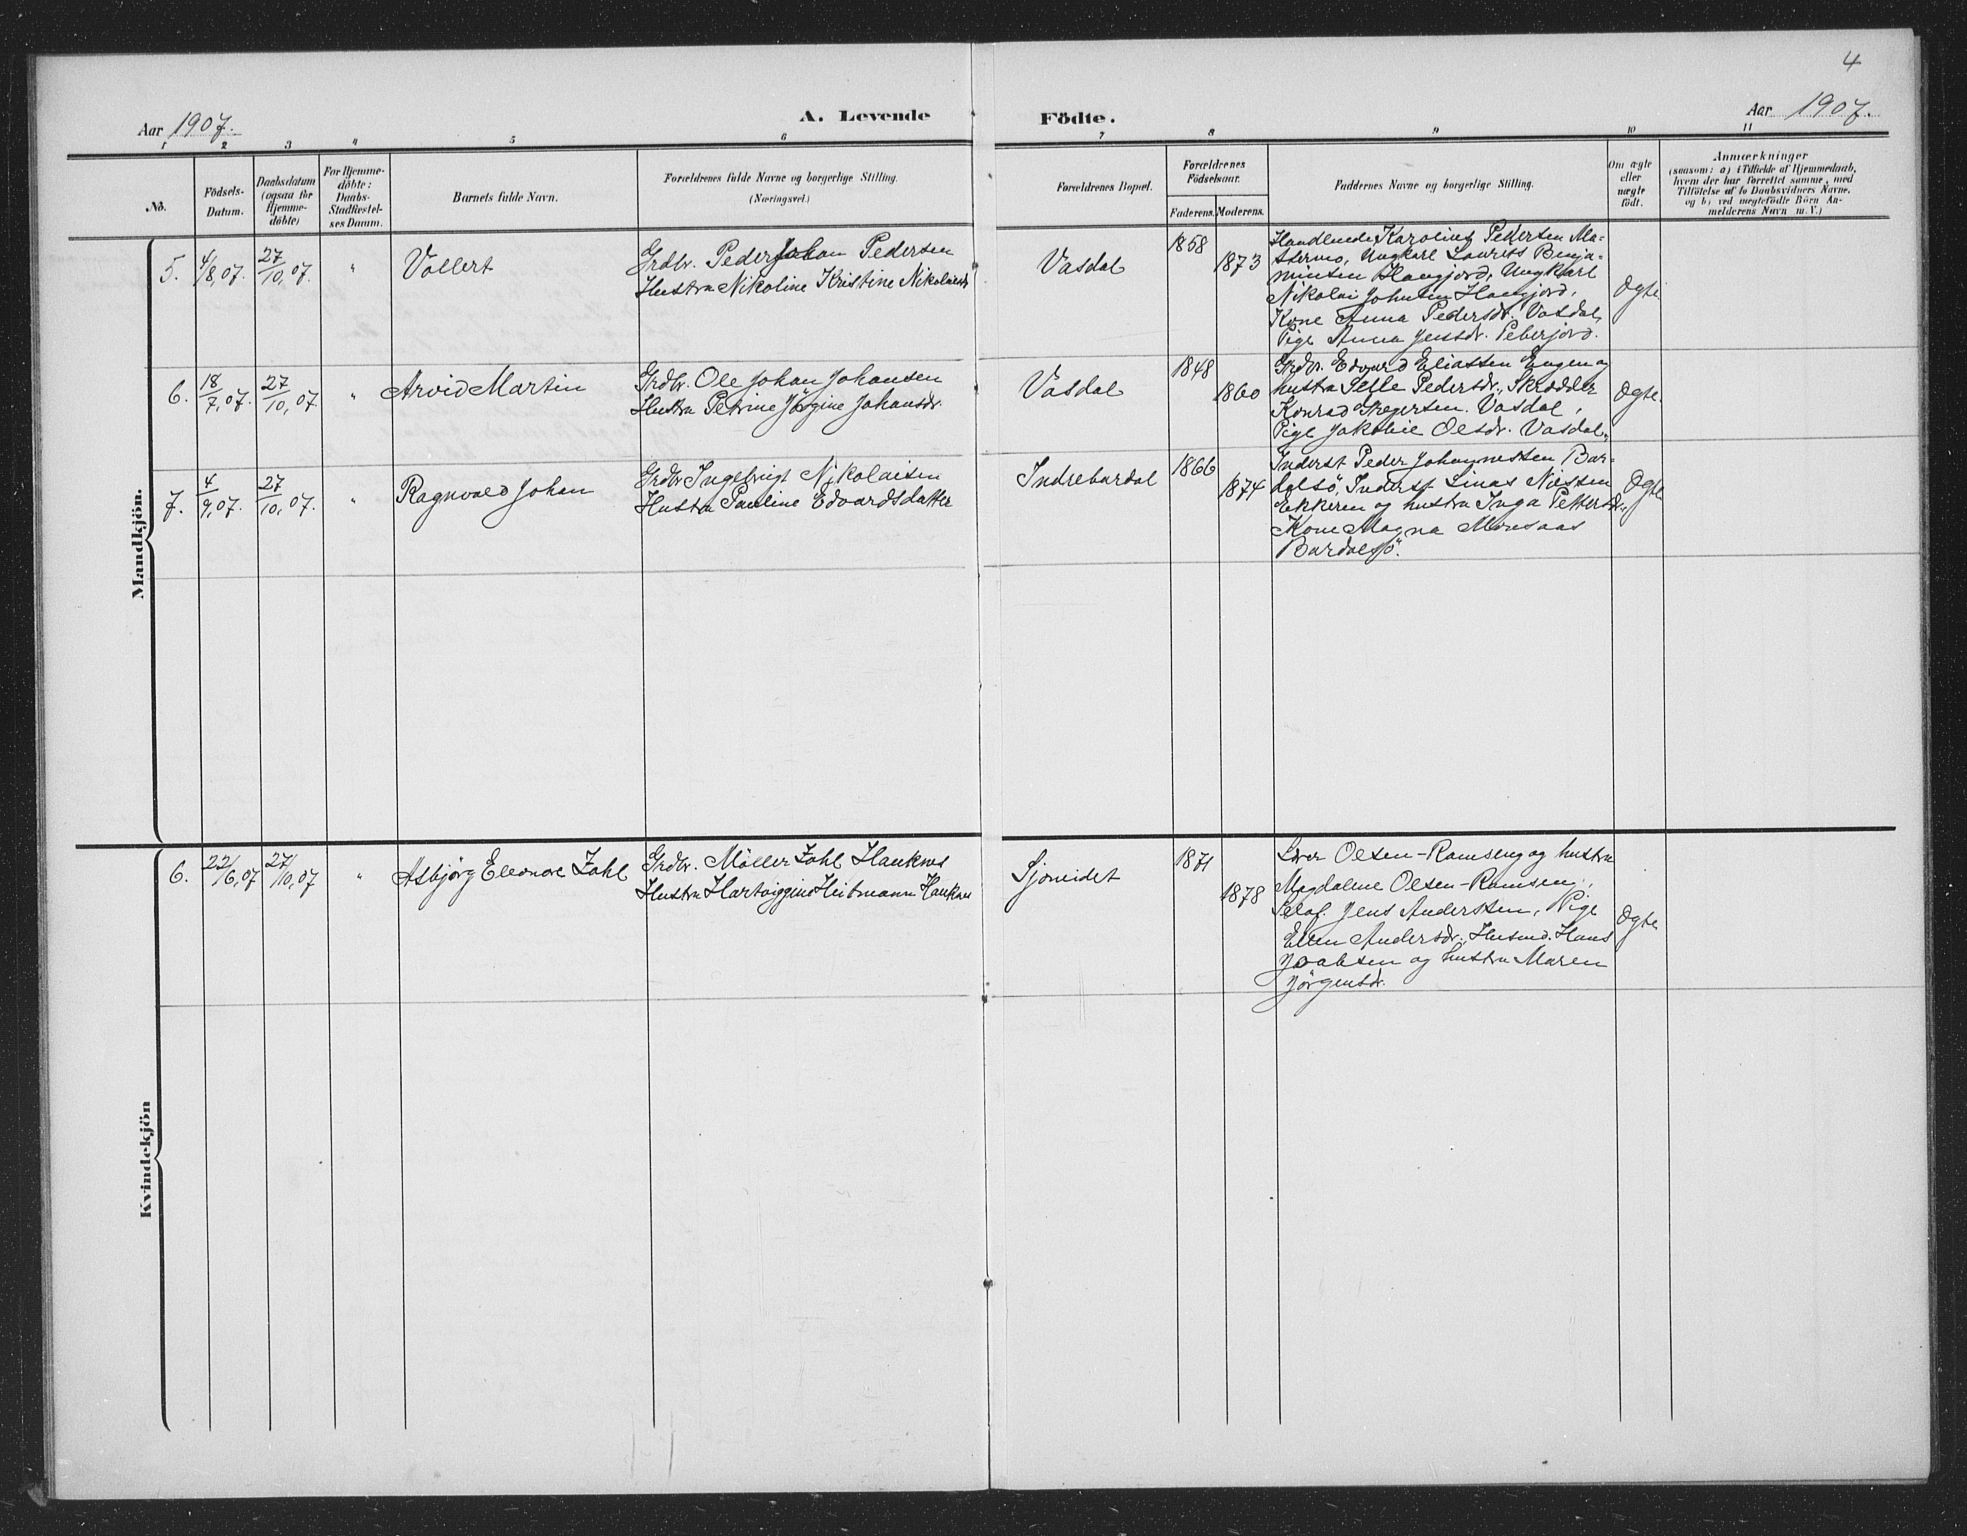 4
Aar 1907.
A. Levende Födte.
Aar 1907.
1 2 3 4 5 6 7 8 9 10 11
No.
Födsels-
Datum.
Daabsdatum
(ogsaa for
Hjemme-
döbte)
For Hjemme-
döbte:
Daabs-
Stadfæstel-
ses Datum.
Barnets fulde Navn.
Forældrenes fulde Navne og borgerlige Stilling.
(Næringsvei.)
Forældrenes Bopæl.
Forældrenes
Födselsaar.
Faderens. Moderens.
Faddernes Navne og borgerlige Stilling.
Om ægte
eller
uægte
født.
Anmærkninger
(saasom: a) i Tilfælde af Hjemmedaab,
hvem der har forrettet samme, med
Tilföielse af to Daabsvidners Navne,
og b) ved uægtefödte Börn An-
melderens Navn m. V.)
Mandkjön.
5. 4/8,07. 27/10,07. " Vollert
Grdbr. Peder Johan Pedersen
Hustru Nikoline Kristine Nikolaisdr
Vasdal
1858
1873
Handlende Karolius Pedersen Ma-
stermo, Ungkarl Laurits Benja-
minsen Haugjord, Ungkarl
Nikolai Johnsen Haugjord,
Kone Anna Pedersdr. Vasdal,
Pige Anna Jensdr. Peberjord.
Ægte
6. 18/7,07. 27/10,07. " Arvid Martin
Grdbr. Ole Johan Johansen
Hustru Petrine Jörgine Johansdr.
Vasdal
1848
1860
Grdbr. Edvard Eliassen Engen og
hustru Pedersdr., Skrædder
Konrad Vasdal,
Pige Olsdr. Vasdal.
Ægte.
7. 4/9,07. 27/10,07. " Ragnvald Johan
Grdbr Ingebrigt Nikolaisen
Hustru Pauline Edvardsdatter
Indrebardal
1866
1874
Inderst Peder Johannessen Bar-
dalsö, Inderst Linas Nilssen
Ekkeren og hustru Inga Pettersdr.,
Kone Magna Moresaas
Bardalsjö.
Ægte
Kvindekjön
6. 22/6,07 27/10,07 " Asbjörg Eleonore Zahl
Grdbr. Möller Zahl Hauknes
Hustru Hartviggine Heitmann Hauknes
Sjoneidet
1871
1878
Olsen-Ramseng og hustru
Magdalene Olsen-Ramsen,
Selvf. Jens Anderssen, Pige
Ellen Andersdr., Husmd. Hans
Joabsen og hustru Maren
Jörgensdr.
Ægte